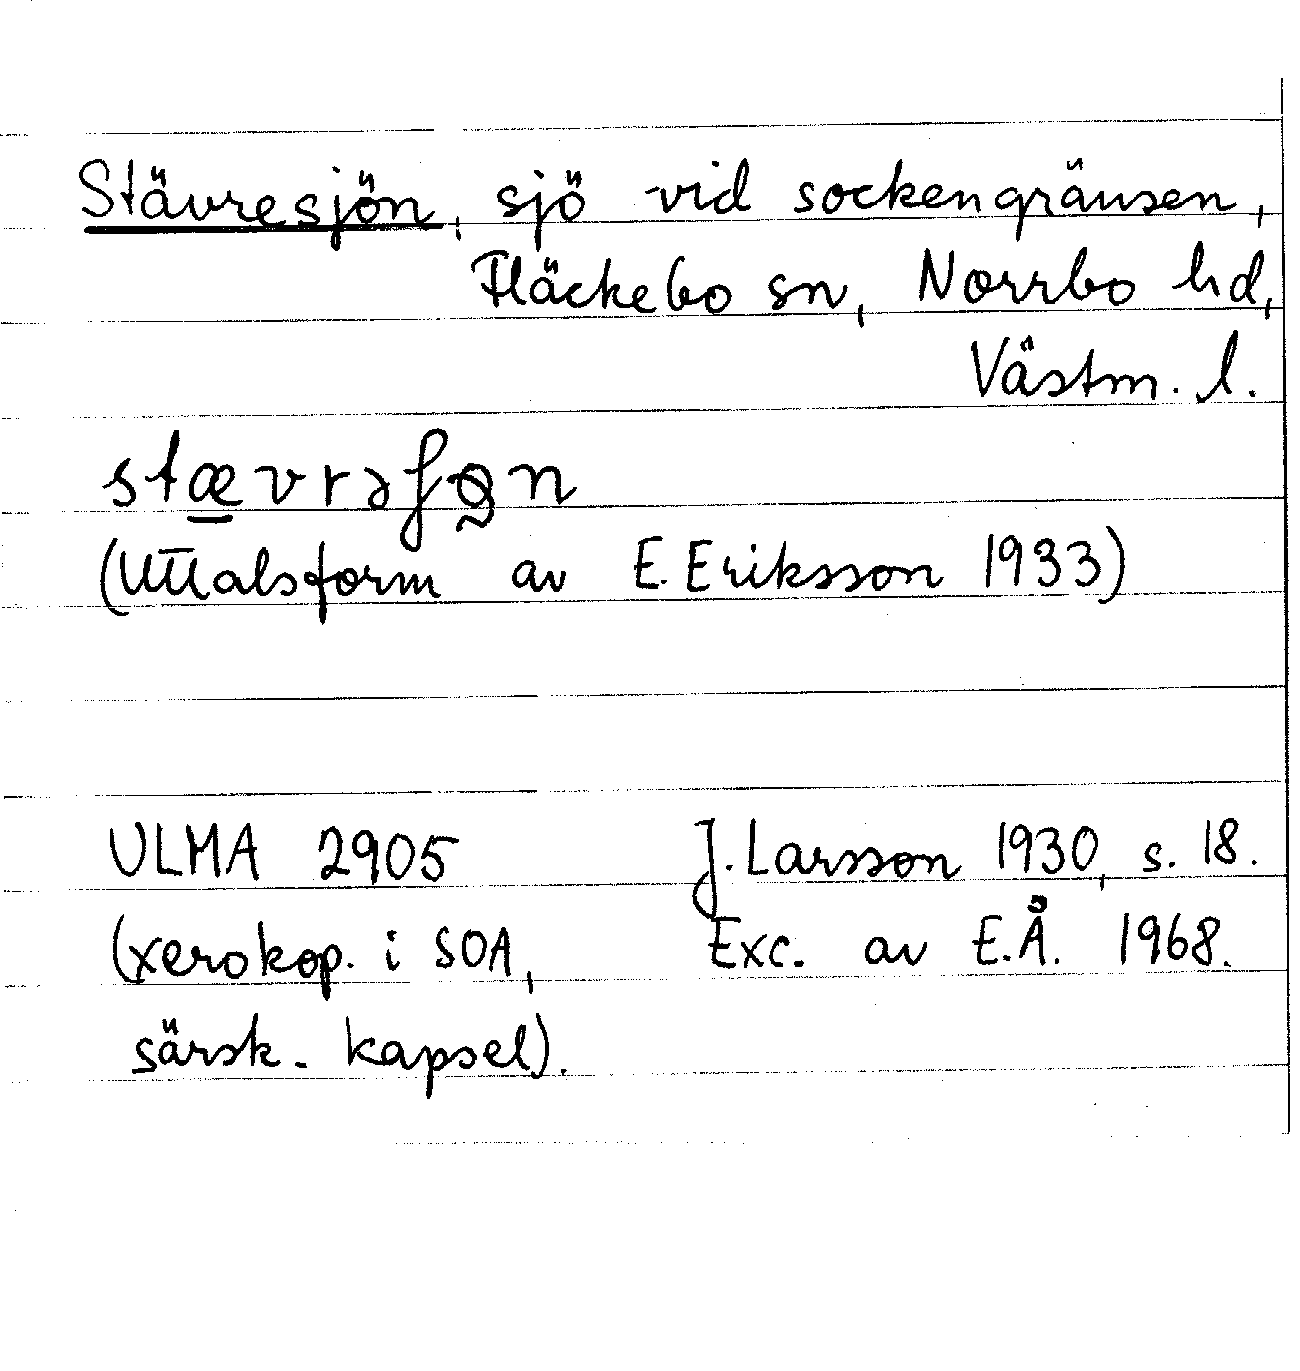 Stävresjön, sjö vid sockengränsen,
Fläckebo sn, Norrbo hd,
Västm. l.
stævrəʃøn
(Uttalsform av E. Eriksson 1933)
ULMA 2905 J. Larsson 1930, s. 18.
(xerokop. i SOA, Exc. av E.Å. 1968.
särsk. kapsel).